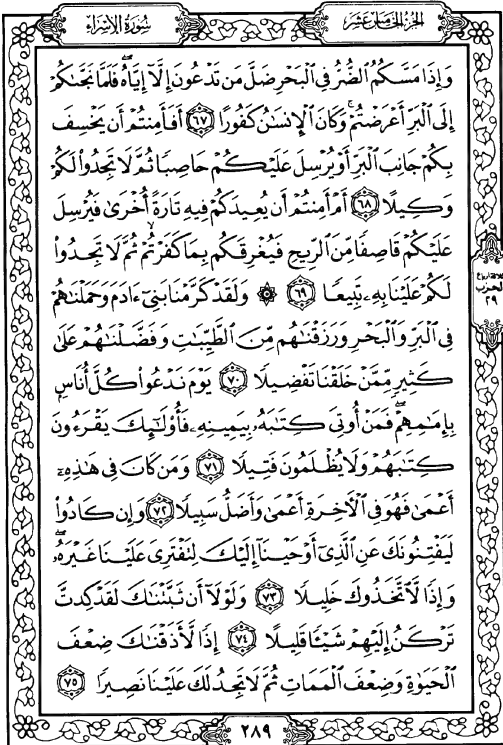 سُورَةُ الإِسْرَاءِ
الجُزْءُ الخَامِسَ عَشَرَ
وَإِذَا مَسَّكُمُ ٱلضُّرُّ فِى ٱلْبَحْرِ ضَلَّ مَن تَدْعُونَ إِلَّآ إِيَّاهُ فَلَمَّا نَجَّىٰكُمْ
إِلَى ٱلْبَرِّ أَعْرَضْتُمْ وَكَانَ ٱلْإِنسَٰنُ كَفُورًا ٦٧ أَفَأَمِنتُمْ أَن يَخْسِفَ
بِكُمْ جَانِبَ ٱلْبَرِّ أَوْ يُرْسِلَ عَلَيْكُمْ حَاصِبًا ثُمَّ لَا تَجِدُوا۟ لَكُمْ
وَكِيلًا ٦٨ أَمْ أَمِنتُمْ أَن يُعِيدَكُمْ فِيهِ تَارَةً أُخْرَىٰ فَيُرْسِلَ
عَلَيْكُمْ قَاصِفًا مِّنَ ٱلرِّيحِ فَيُغْرِقَكُم بِمَا كَفَرْتُمْ ثُمَّ لَا تَجِدُوا۟
لَكُمْ عَلَيْنَا بِهِۦ تَبِيعًا ٦٩ ۞ وَلَقَدْ كَرَّمْنَا بَنِىٓ ءَادَمَ وَحَمَلْنَٰهُمْ
فِى ٱلْبَرِّ وَٱلْبَحْرِ وَرَزَقْنَٰهُم مِّنَ ٱلطَّيِّبَٰتِ وَفَضَّلْنَٰهُمْ عَلَىٰ
كَثِيرٍ مِّمَّنْ خَلَقْنَا تَفْضِيلًا ٧٠ يَوْمَ نَدْعُوا۟ كُلَّ أُنَاسٍۭ
بِإِمَٰمِهِمْ فَمَنْ أُوتِىَ كِتَٰبَهُۥ بِيَمِينِهِۦ فَأُو۟لَٰٓئِكَ يَقْرَءُونَ
كِتَٰبَهُمْ وَلَا يُظْلَمُونَ فَتِيلًا ٧١ وَمَن كَانَ فِى هَٰذِهِۦٓ
أَعْمَىٰ فَهُوَ فِى ٱلْءَاخِرَةِ أَعْمَىٰ وَأَضَلُّ سَبِيلًا ٧٢ وَإِن كَادُوا۟
لَيَفْتِنُونَكَ عَنِ ٱلَّذِىٓ أَوْحَيْنَآ إِلَيْكَ لِتَفْتَرِىَ عَلَيْنَا غَيْرَهُۥ
وَإِذًا لَّٱتَّخَذُوكَ خَلِيلًا ٧٣ وَلَوْلَآ أَن ثَبَّتْنَٰكَ لَقَدْ كِدتَّ
تَرْكَنُ إِلَيْهِمْ شَيْـًٔا قَلِيلًا ٧٤ إِذًا لَّأَذَقْنَٰكَ ضِعْفَ
ٱلْحَيَوٰةِ وَضِعْفَ ٱلْمَمَاتِ ثُمَّ لَا تَجِدُ لَكَ عَلَيْنَا نَصِيرًا ٧٥
الحزب
٢٩
٢٨٩